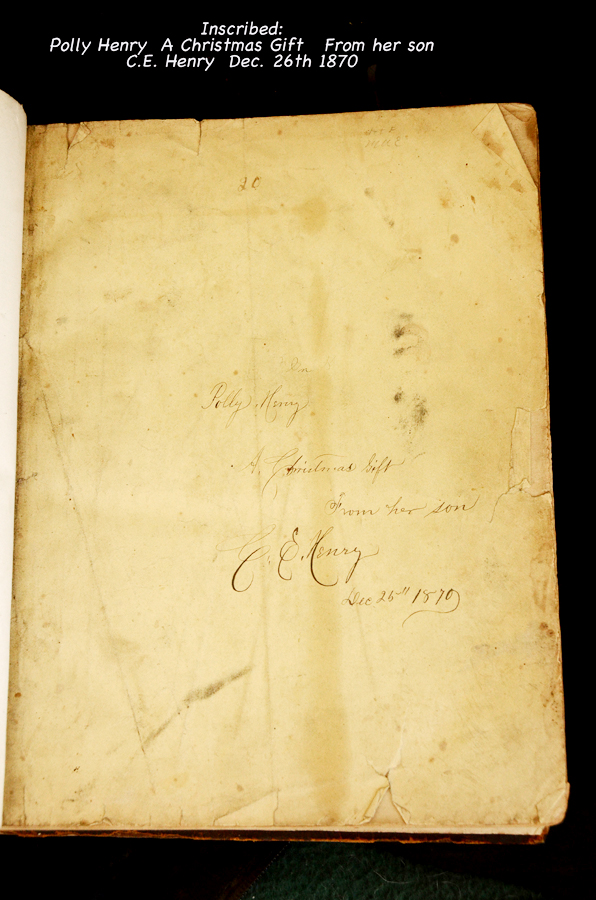 Inscribed:
Polly Henry A Christmas Gift From her son
C.E. Henry Dec. 26th 1870
20
Polly Henry
A Christmas Gift
From her son
C. E. Henry
Dec 25th 1870